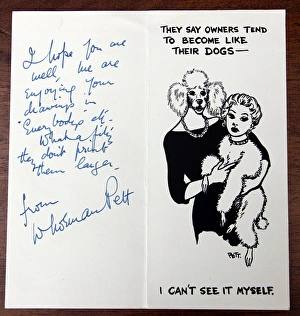 I hope you are
well, we are
enjoying your
drawings in
Everybodys etc.
What a pity
they don't print
them larger.
from
Norman Pett
THEY SAY OWNERS TEND
TO BECOME LIKE
THEIR DOGS—
PETT.
I CAN'T SEE IT MYSELF.